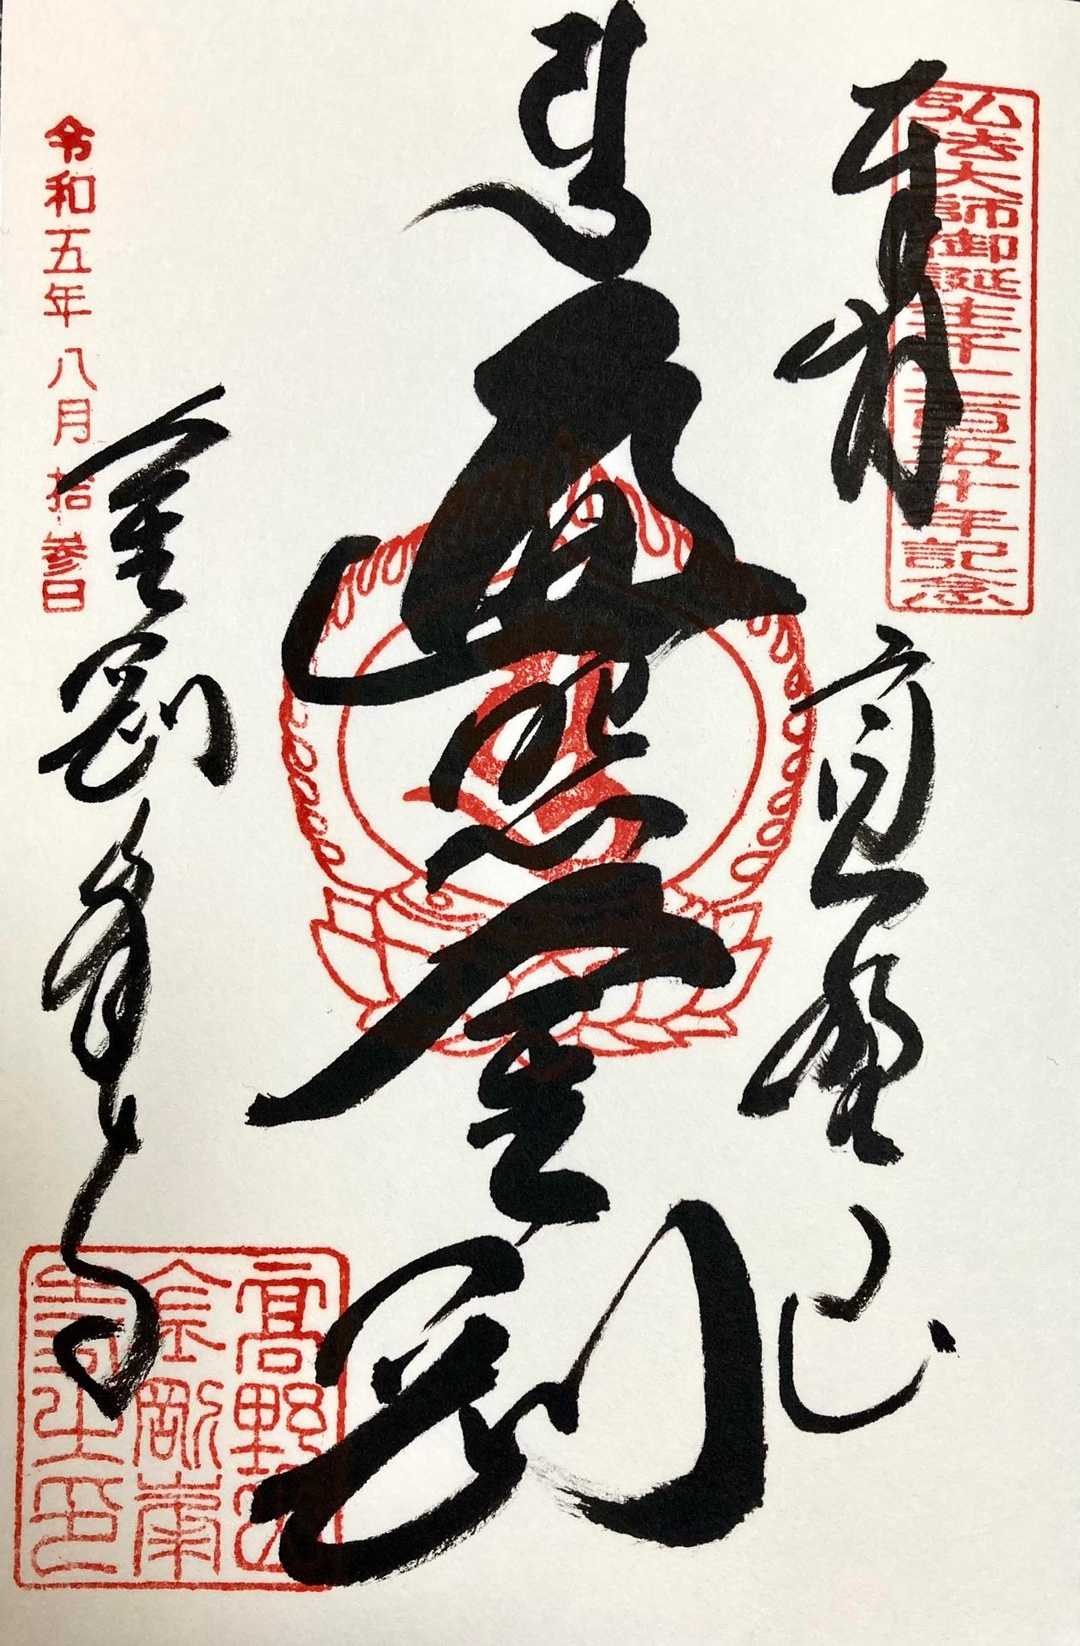 弘法大師御誕生千二百五十年記念
奉拝
高野山
遍照金剛
金剛峯寺
令和五年八月拾参日
高野山
金剛峯
寺之印